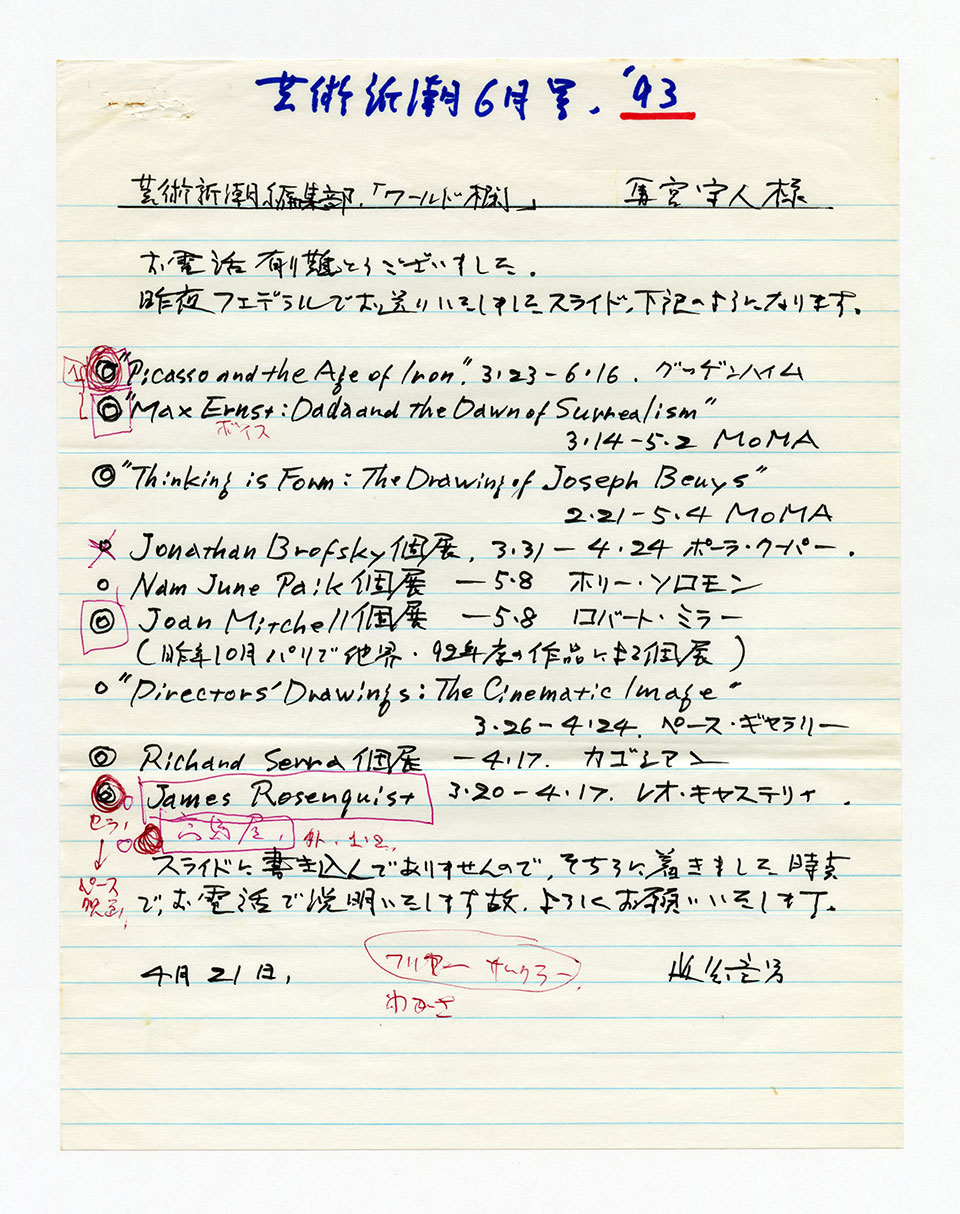 芸術新潮6月号. '93
芸術新潮編集部.「ワールド欄」 馬宮守人様
お電話有難とうございました.
昨夜フェデラルでお送りいたしましたスライド、下記のようになります.
1
"Picasso and the Age of Iron". 3・23-6・16. グッゲンハイム
"Max Ernst: Dada and the Dawn of Surrealism"
ボイス
3.14-5.2 MoMA
"Thinking is Form: The Drawing of Joseph Beuys"
2.21-5.4 MoMA
Jonathan Brofsky個展, 3.31-4.24 ポーラ・クーパー.
Nam June Paik個展 -5.8 ホリー・ソロモン
Joan Mitchell個展 -5.8 ロバート・ミラー
(昨年10月パリで他界・92年度の作品による個展)
"Directors' Drawings: The Cinematic Image"
3.26-4.24. ペース・ギャラリー
Richard Serra個展 -4.17. ガゴシアン
James Rosenquist 3.20-4.17. レオ・キャステリィ.
セラ,
高島屋,
スライドに書き込んでありませんので,そちらに着きました時点
で,お電話で説明いたします故.よろしくお願いいたします.
ペース
4月21日,
フリヤー サックラー